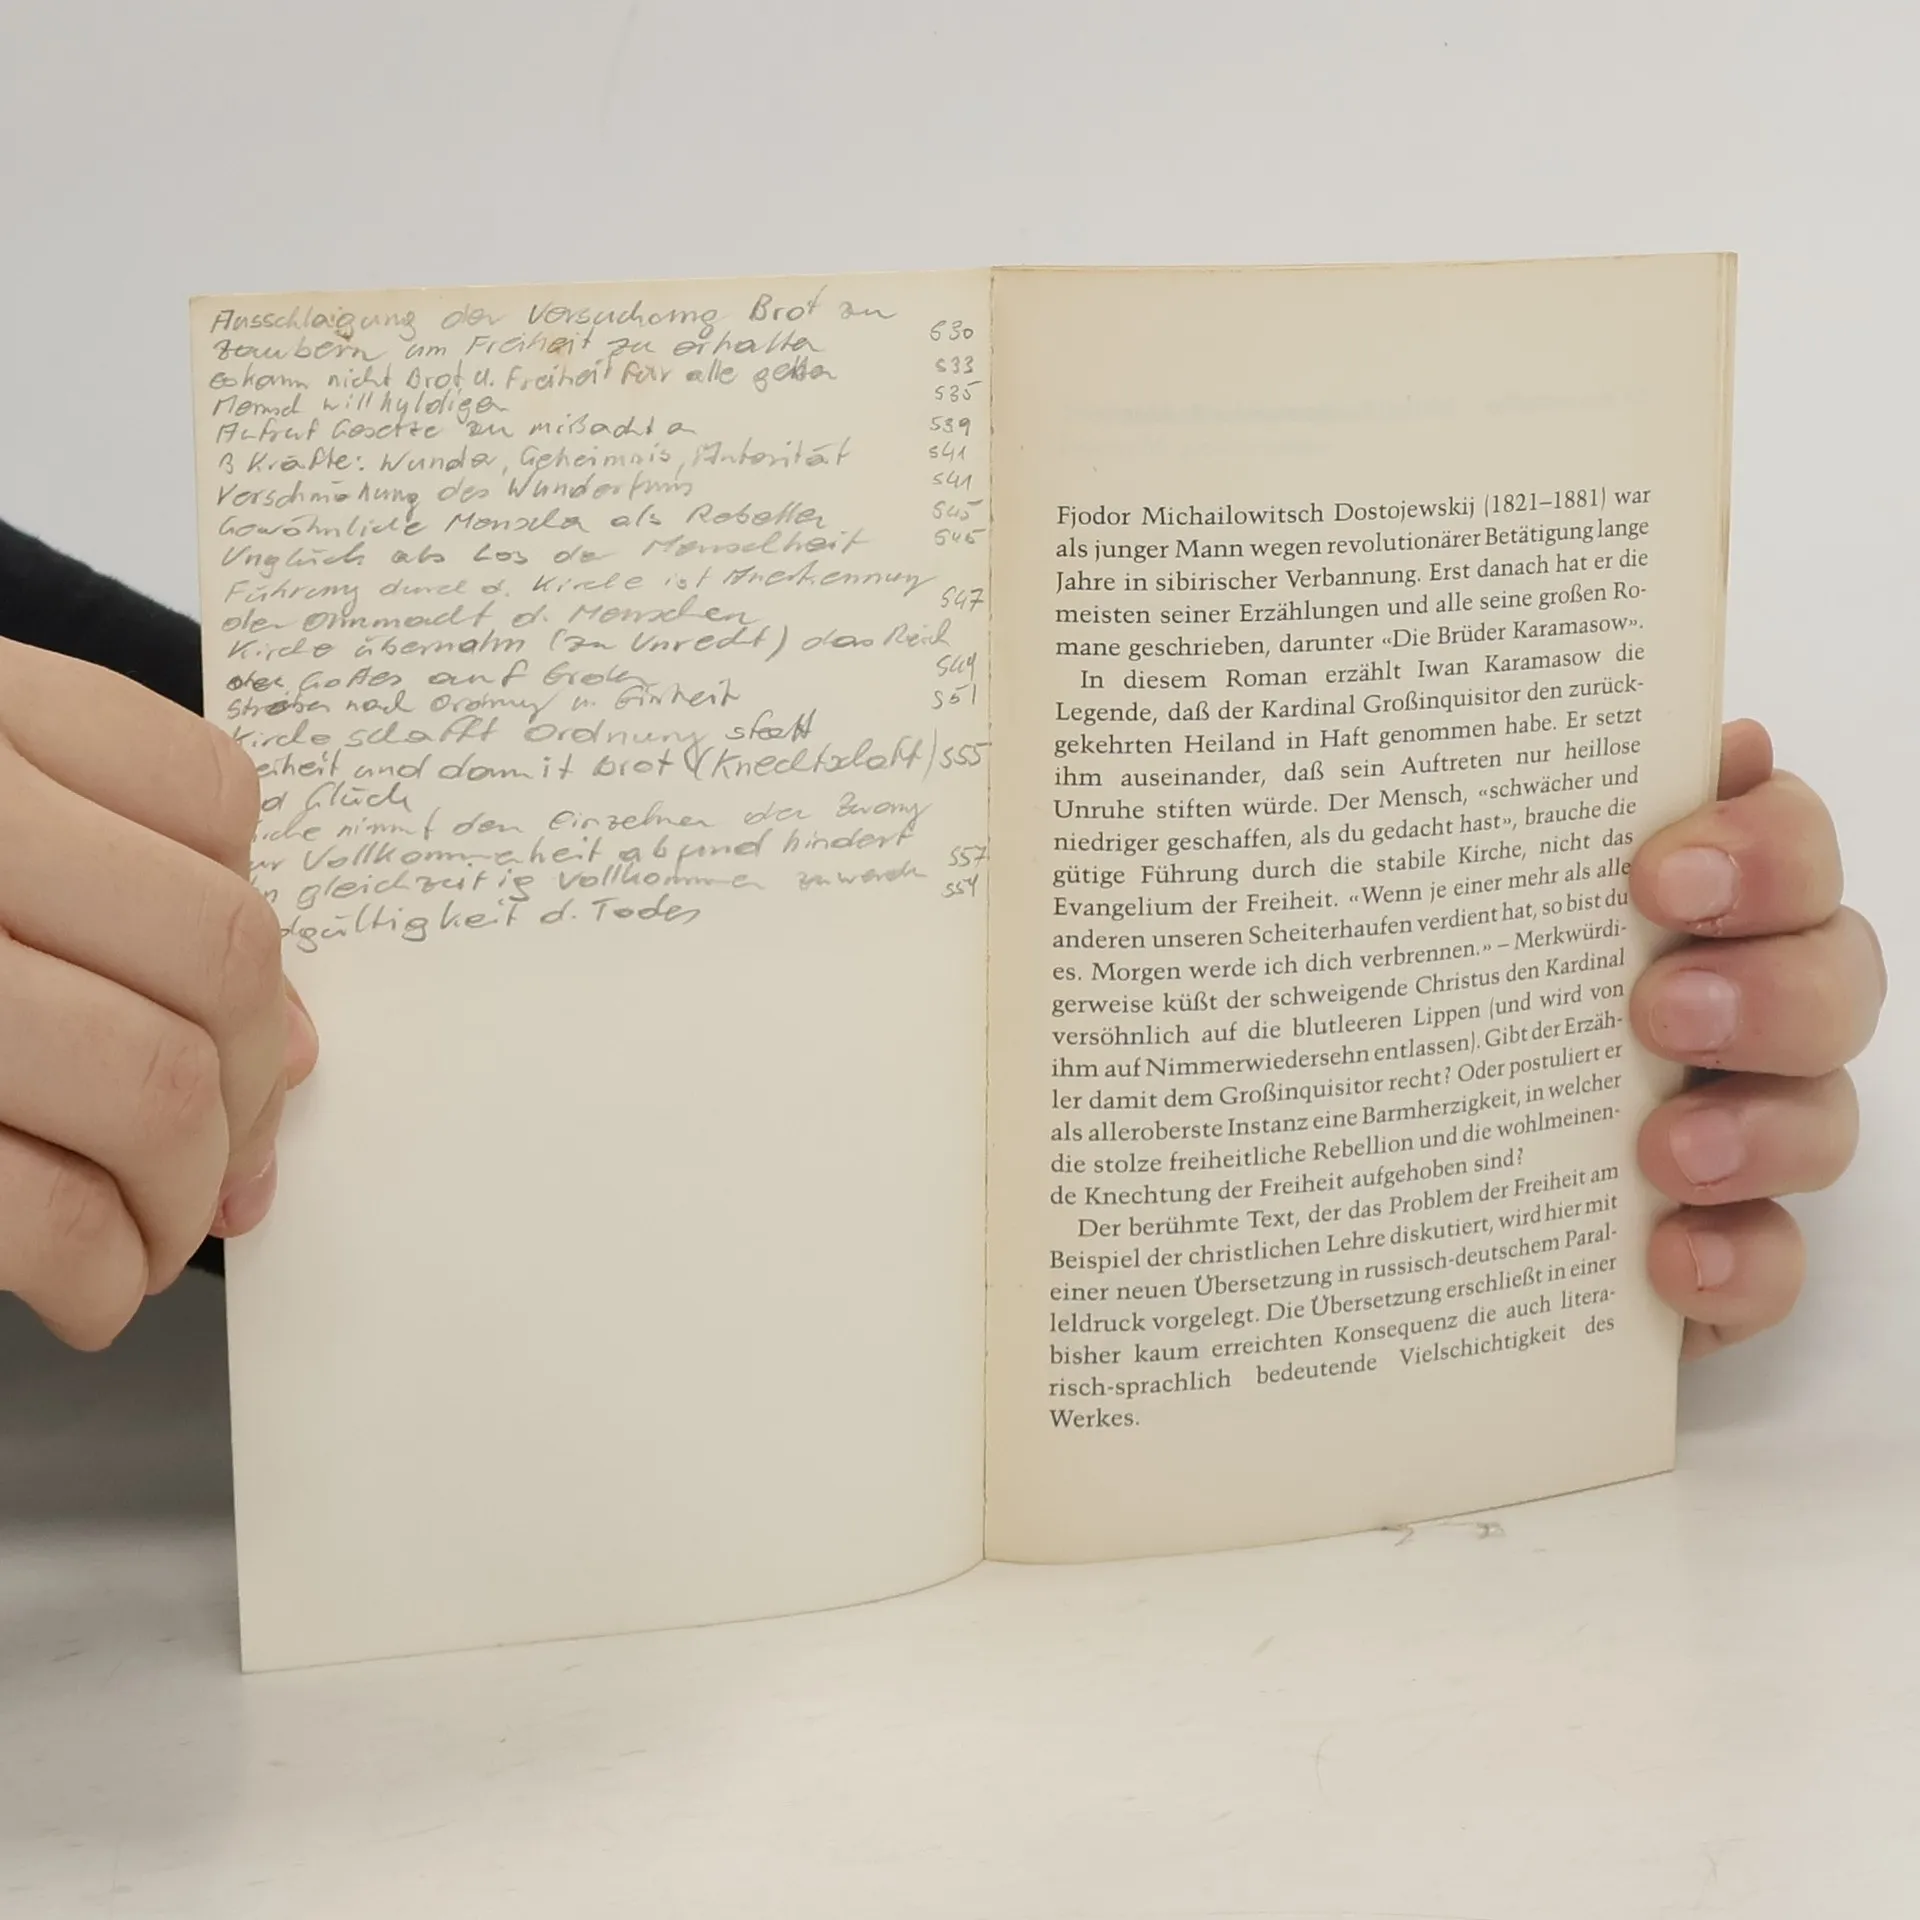 Ausschlagung der Versuchung Brot zu
zaubern um Freiheit zu erhalten S30
es kann nicht Brot u. Freiheit für alle geben S33
Mensch will huldigen S35
Aufruf Gesetze zu mißachten S39
3 Kräfte: Wunder, Geheimnis, Autorität S41
Verschmähung des Wundertuns S41
Gewöhnliche Menschen als Rebellen S45
Unglück als Los der Menschheit S45
Führung durch d. Kirche ist Anerkennung
der Ohnmacht d. Menschen S47
Kirche übernahm (zu Unrecht) das Reich
Gottes auf Erden S49
Streben nach Ordnung u. Einheit S51
Kirche schafft Ordnung statt
eiheit und damit Brot (Knechtschaft) S55
d Glück
che nimmt den Einzelnen den Zwang
ur Vollkommenheit ab und hindert S57
n gleichzeitig vollkommen zu werden S59
dgültigkeit d. Todes
Fjodor Michailowitsch Dostojewskij (1821–1881) war
als junger Mann wegen revolutionärer Betätigung lange
Jahre in sibirischer Verbannung. Erst danach hat er die
meisten seiner Erzählungen und alle seine großen Ro-
mane geschrieben, darunter «Die Brüder Karamasow».
In diesem Roman erzählt Iwan Karamasow die
Legende, daß der Kardinal Großinquisitor den zurück-
gekehrten Heiland in Haft genommen habe. Er setzt
ihm auseinander, daß sein Auftreten nur heillose
Unruhe stiften würde. Der Mensch, «schwächer und
niedriger geschaffen, als du gedacht hast», brauche die
gütige Führung durch die stabile Kirche, nicht das
Evangelium der Freiheit. «Wenn je einer mehr als alle
anderen unseren Scheiterhaufen verdient hat, so bist du
es. Morgen werde ich dich verbrennen.» – Merkwürdi-
gerweise küßt der schweigende Christus den Kardinal
versöhnlich auf die blutleeren Lippen (und wird von
ihm auf Nimmerwiedersehn entlassen). Gibt der Erzäh-
ler damit dem Großinquisitor recht? Oder postuliert er
als alleroberste Instanz eine Barmherzigkeit, in welcher
die stolze freiheitliche Rebellion und die wohlmeinen-
de Knechtung der Freiheit aufgehoben sind?
Der berühmte Text, der das Problem der Freiheit am
Beispiel der christlichen Lehre diskutiert, wird hier mit
einer neuen Übersetzung in russisch-deutschem Paral-
leldruck vorgelegt. Die Übersetzung erschließt in einer
bisher kaum erreichten Konsequenz die auch litera-
risch-sprachlich bedeutende Vielschichtigkeit des
Werkes.